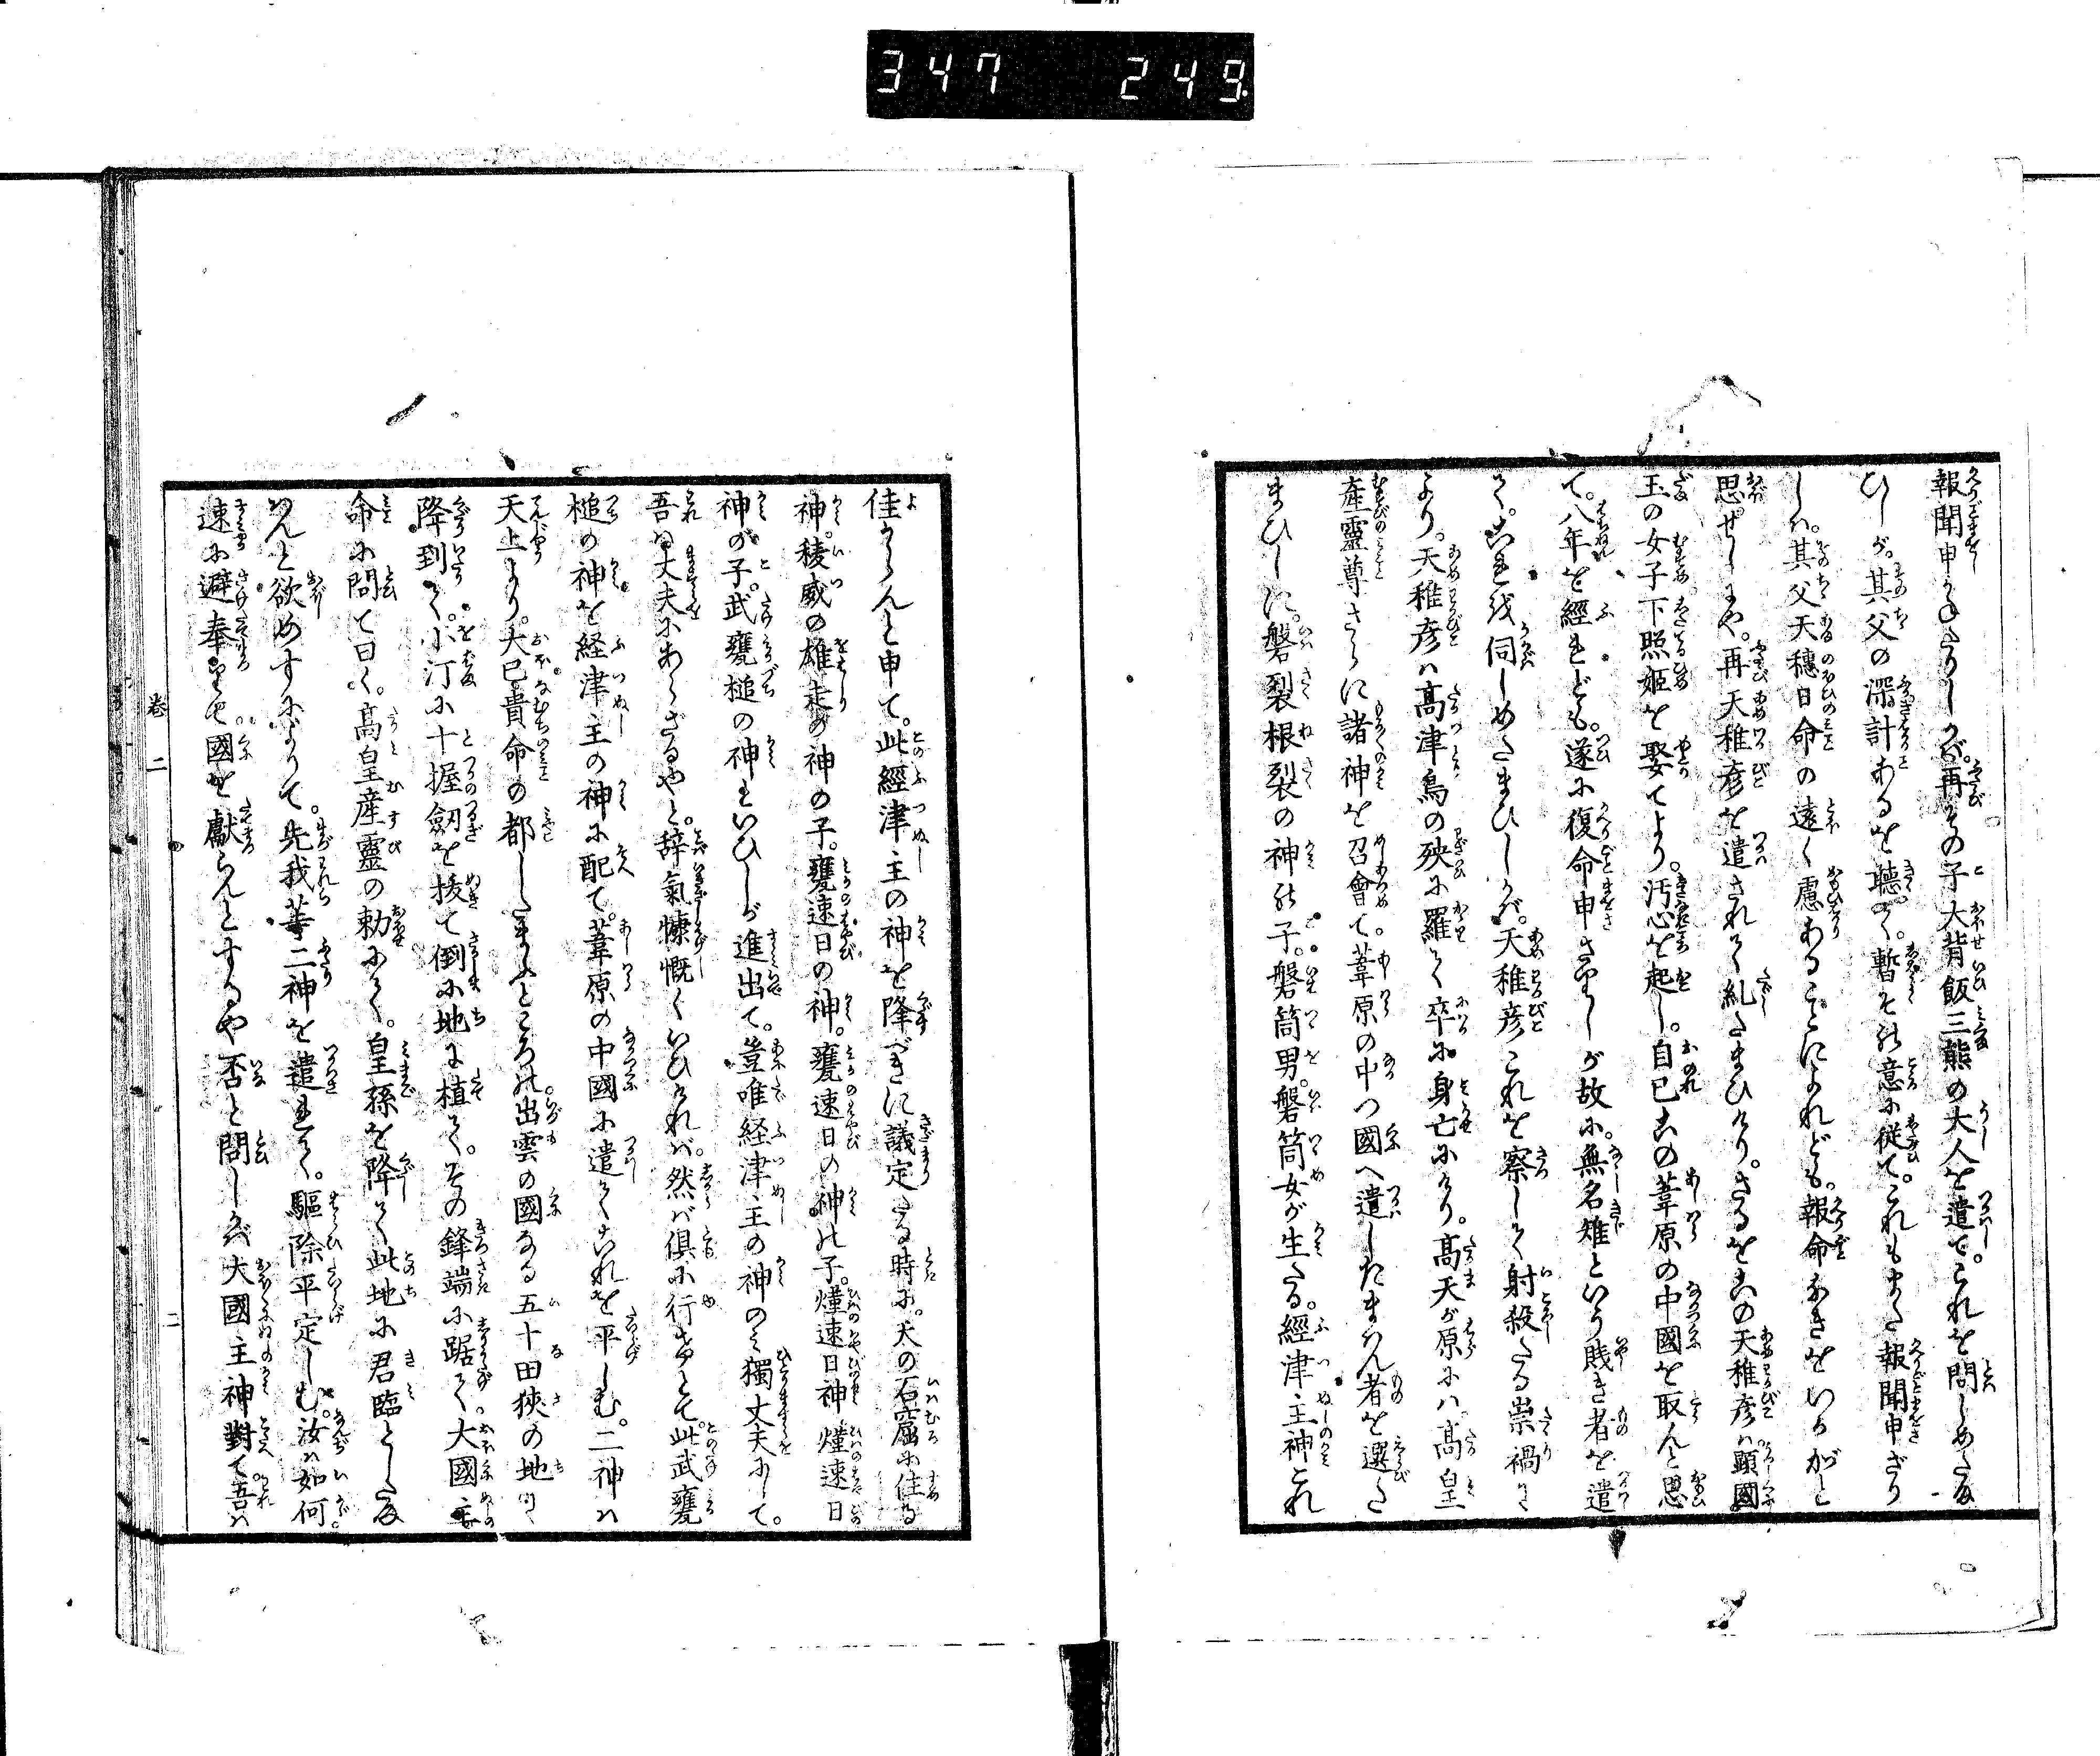 347 249
報聞申かねたりしかば。再その子大背飯三熊の大人を遣て。これを問しめたま
ひしが。其父の深計あるを聴て。暫その意に従て。これもまた報聞申ざり
しは。其父天穂日命の遠く慮あることによれども。報命なきをいかがと
思ぜしにや。再天稚彦を遣されて糺たまひけり。さるをこの天稚彦は顕國
玉の女子下照姫を娶てより。汚心を起し。自已この葦原の中國を取んと思
て。八年を經れども。遂に復命申さゞりしが故に。無名雉という賎き者を遣
て。これを伺しめたまひしかば。天稚彦これを察して射殺たる祟禍に
より。天稚彦は髙津鳥の殃に羅て卒に身亡にけり。髙天が原には。髙皇
產靈尊さらに諸神を召會て。葦原の中つ國へ遣したまはん者を選た
まひしに。磐裂根裂の神の子。磐筒男。磐筒女が生たる。經津主神これ
佳からんと申て。此經津主の神を降べきに議定たる時に。天の石窟に住る
神。稜威の雄走の神の子。甕速日の神。甕速日の神の子。熯速日神熯速日
神の子。武甕槌の神といひしが進出て。豈唯経津主の神のミ獨丈夫にして。
吾は丈夫にあらざるやと。辞氣慷慨くいひければ。然ば俱に行きとて。此武甕
槌の神を経津主の神に配て。葦原の中國に遣てこれを平しむ。二神は
天上より。大已貴命の都したまふところの。出雲の國なる五十田狹の地に
降到て。小汀に十握劔を抜て倒に地に植て。その鋒端に踞て。大國主
命に問て曰く。髙皇産靈の勅にて。皇孫を降て此地に君臨としたま
はんと欲めすによりて。先我等二神を遣れて。驅除平定しむ。汝は如何
速に避奉りて。國を獻らんとするや否と問しかば大國主神對て吾は
巻二
二